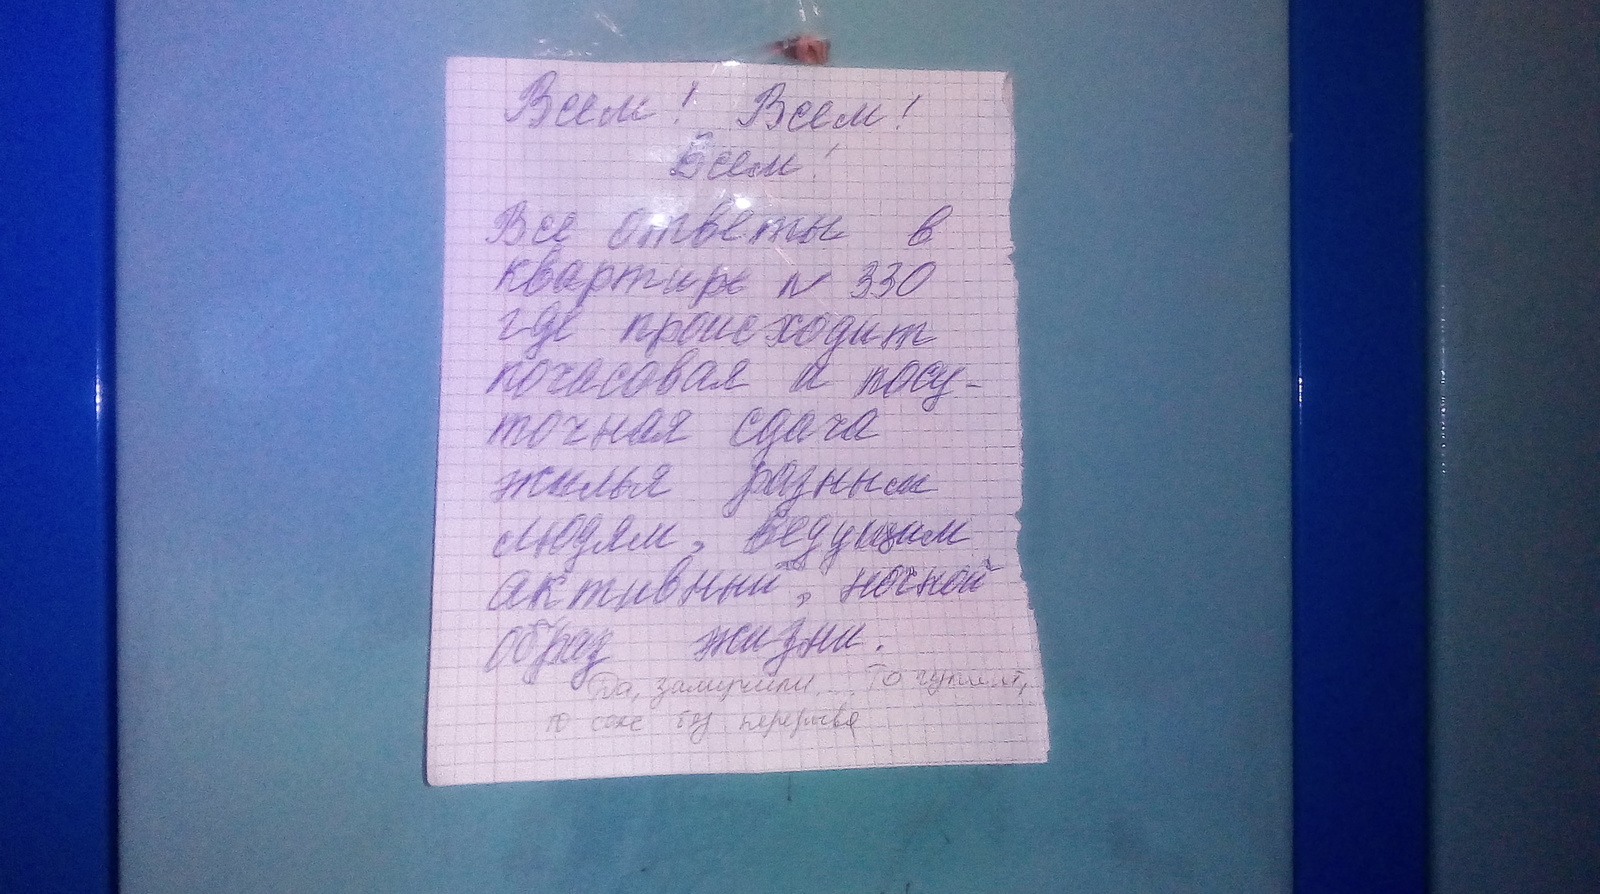 Всем! Всем!
Всем!
Все ответы в
квартире N 330
где происходит
почасовая и посу-
точная сдача
жилья разным
людям, ведущим
активный, ночной
образ жизни.
Да, замучили... То гуляют,
то секс без перерыва